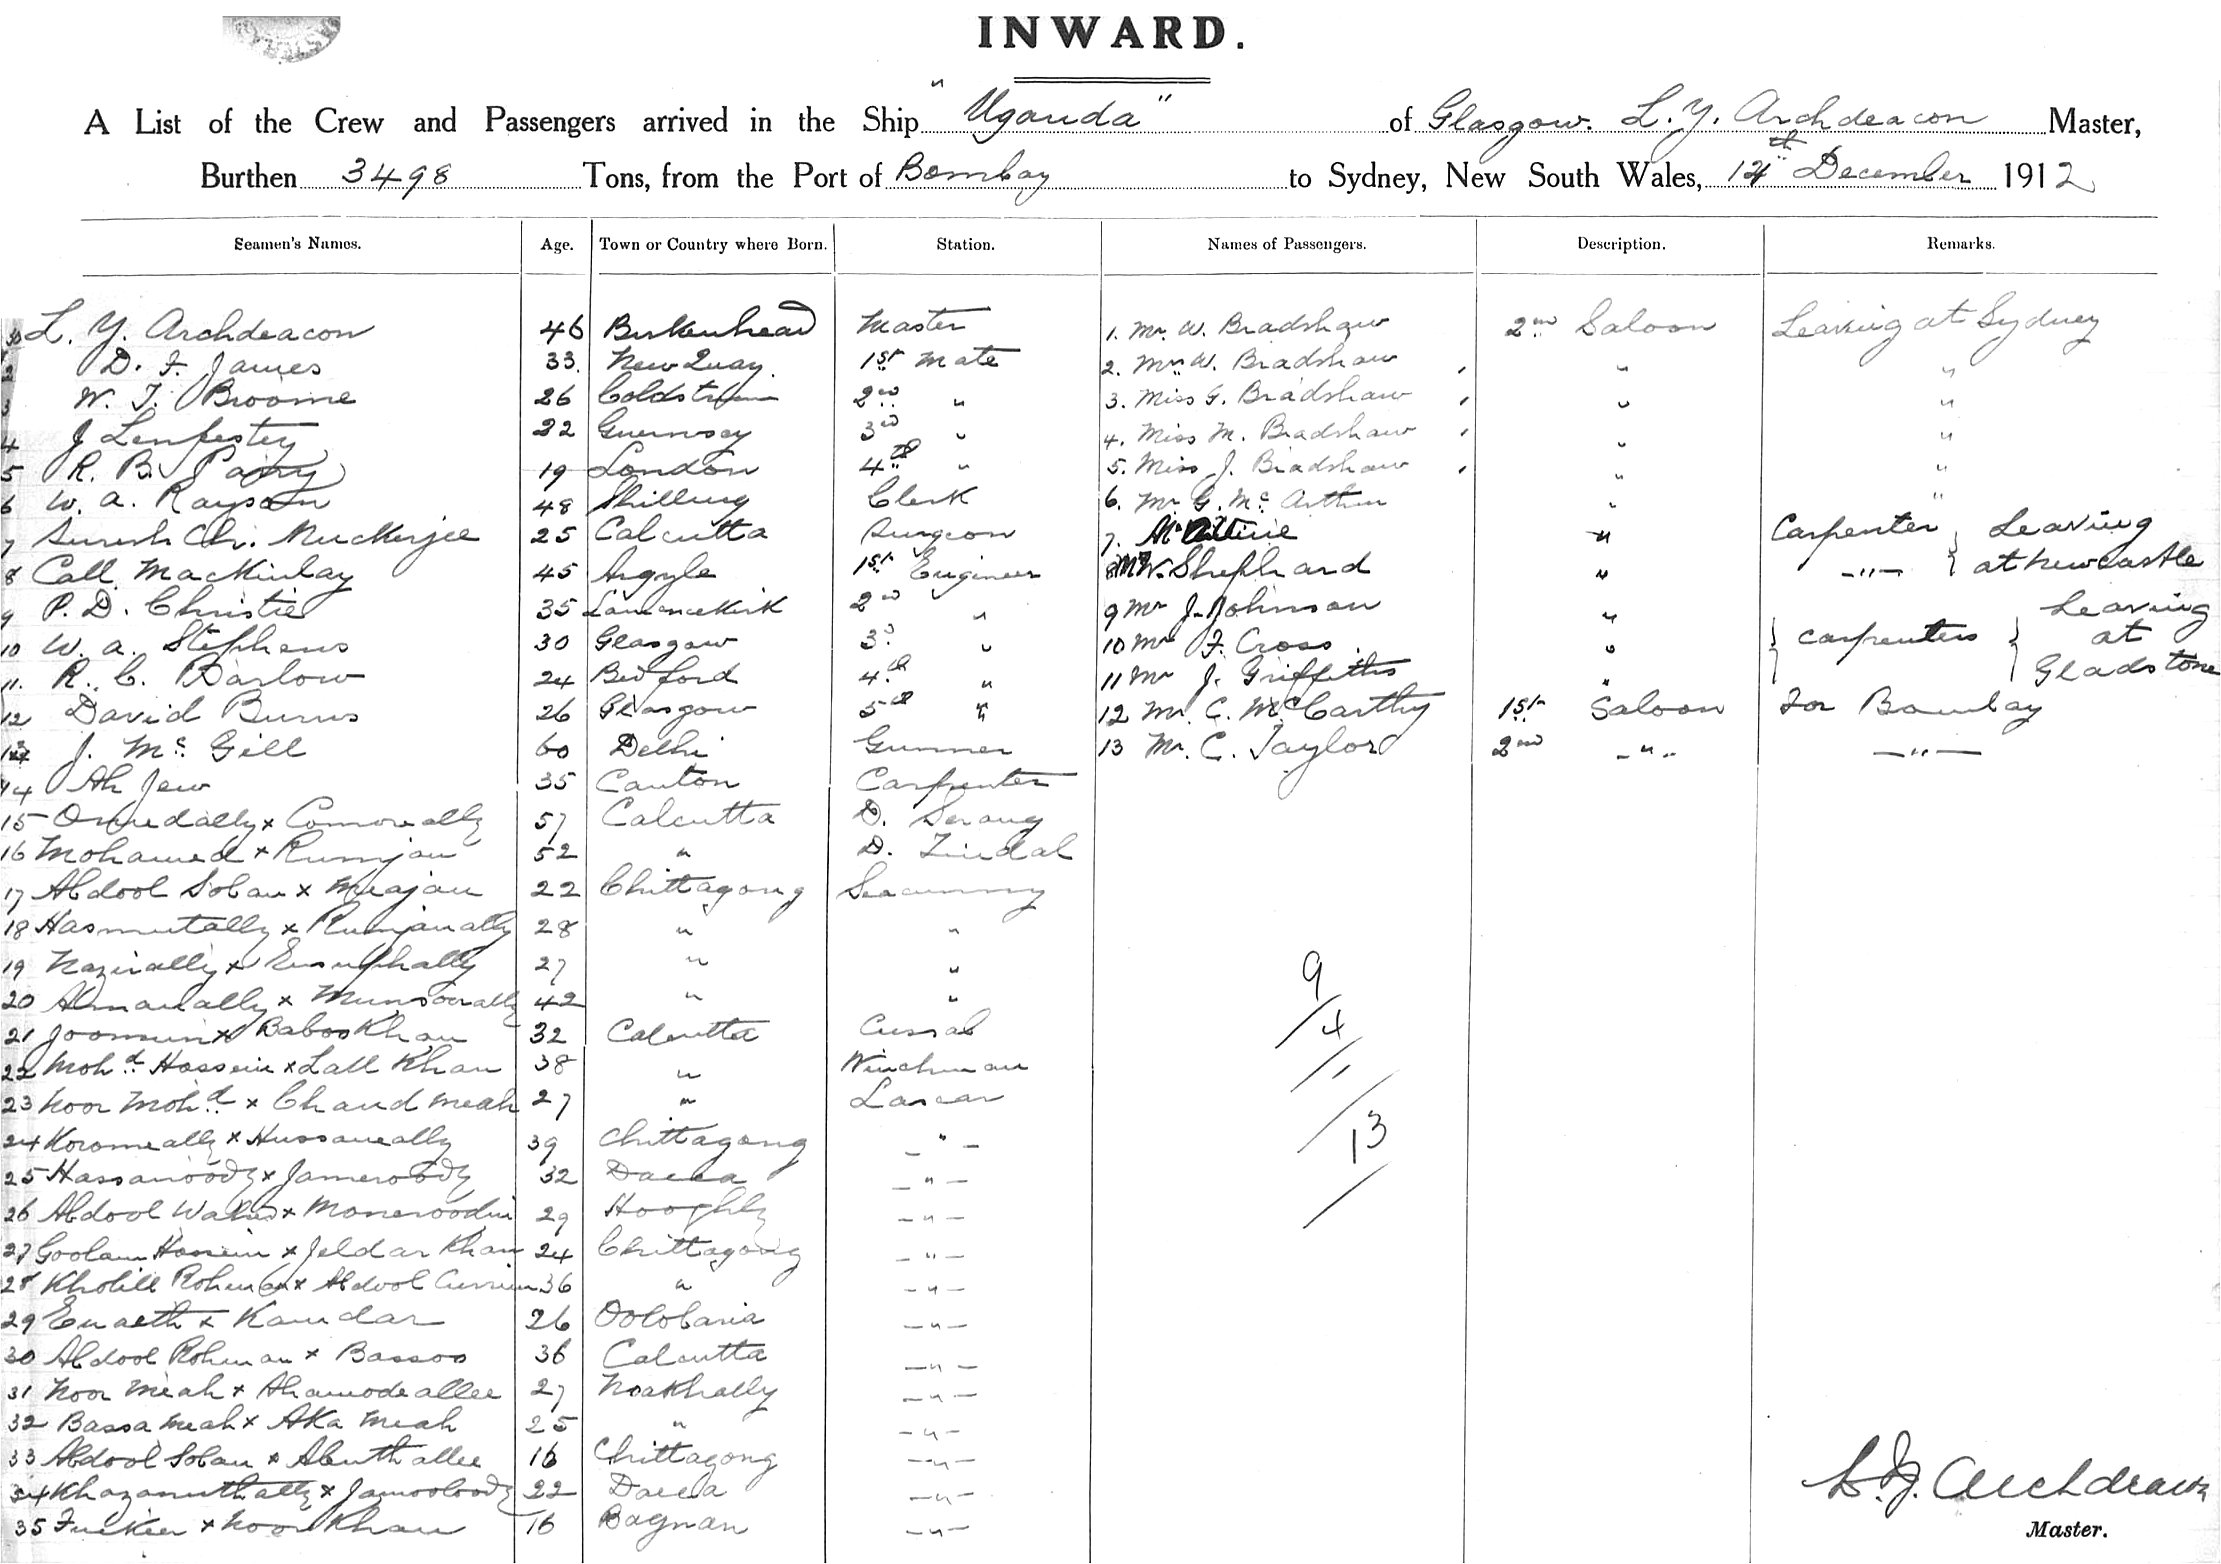 INWARD.
A List of the Crew and Passengers arrived in the Ship "Uganda" of Glasgow. L. Y. Archdeacon Master,
Burthen 3498 Tons, from the Port of Bombay to Sydney, New South Wales, 14th December 1912
Seamen's Names. Age. Town or Country where Born. Station. Names of Passengers. Description. Remarks.
L. Y. Archdeacon 46 Birkenhead Master 1. Mr. W. Bradshaw 2nd Saloon Leaving at Sydney
2 D. F. James 33. New Quay. 1st Mate 2. Mrs W. Bradshaw " "
3 W. T. Broome 26 Coldstream 2nd " 3. Miss G. Bradshaw " "
4 J Lenfestey 22 Guernsey 3rd " 4. Miss M. Bradshaw " "
5 R. B. Parry 19 London 4th " 5. Miss J. Bradshaw " "
6 W. A. Rayson 48 Clerk 6. Mr G. Mc Arthur " "
7 Suresh Ch. Muckerjee 25 Calcutta Surgeon 7. " Carpenter } Leaving
8 Call MacKinlay 45 Argyle 1st Engineer 8 Mr W. Shephard " -"- } at Newcastle
9 P. D. Christie 35 Laurencekirk 2nd " 9 Mr J. Johnson " Leaving
10 W. A. Stephens 30 Glasgow 3rd " 10 Mr F. Cross " } carpenters } at
11. R. C. Barlow 24 Bedford 4th " 11 Mr J. Griffiths " Gladstone
12 David Burns 26 Glasgow 5th " 12 Mr. C. McCarthy 1st Saloon For Bombay
13 J. Mc Gill 60 Delhi Gunner 13 Mr. C. Taylor 2nd -"- -"-
14 Ah Jew 35 Canton Carpenter
15 Omedally x 57 Calcutta D. Serang
16 Mohamed x Rumjan 52 " D. Tindal
17 Abdool Soban x Meajan 22 Chittagong Seacunny
18 Hasmutally x Rumjanally 28 " "
19 Nazirally x Eusuphally 27 " "
20 x Munsoorally 42 " "
21 Joomun x Baboo Khan 32 Calcutta Cussab
22 Mohd Hossein x Lall Khan 38 " Winchman
23 Noor Mohd x Chand Meah 27 " Lascar
24 Koromeally x Hussaneally 39 Chittagong " -
25 Hassanoody x Jameroody 32 Dacca -"-
26 Abdool Wahed x Moneroodin 29 Hooghly -"-
27 Goolam Hossein x Jeldar Khan 24 Chittagong -"-
28 Kholill Rohman x Abdool Currim 36 " -"-
29 Enaeth x Kamdar 26 Oolobaria -"-
30 Abdool Rohman x Bassoo 36 Calcutta -"-
31 Noor Meah x Ahamodeallee 27 Noakhally -"-
32 Bassa Meah x Aka Meah 25 " -"-
33 Abdool Soban x 16 Chittagong -"-
34 Khazamuthally x 22 Dacca -"-
35 Fuckier x Noor Khan 16 Bagnan -"-
9
/ 4
/ 1
/ 13
/
L. Y. Archdeacon
Master.